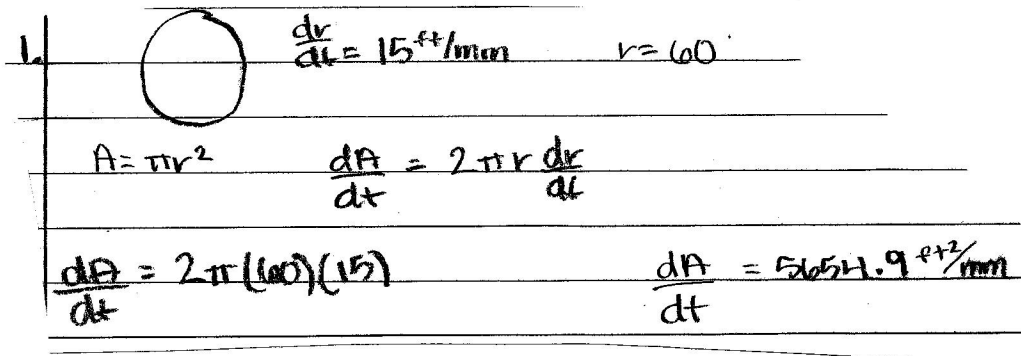 1. dr/dt = 15 ft/min r = 60
A = πr² dA/dt = 2πr dr/dt
dA/dt = 2π(60)(15) dA/dt = 5654.9 ft²/min